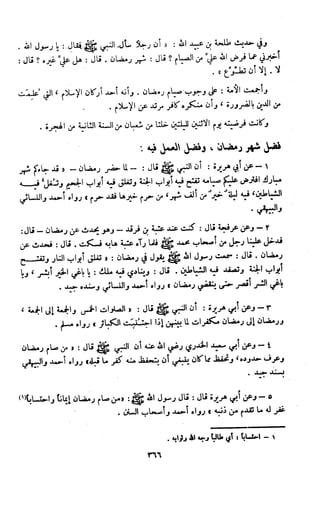 وفي حديث طلحة بن عبيد الله : « أن رجلاً سأل النبي ﷺ فقال : يا رسول الله .
أخبرني عما فرض الله علي من الصيام ؟ قال : شهر رمضان . قال : هل علي غيره ؟ قال :
لا . إلا أن تطوع » .
وأجمعت الأمة : على وجوب صيام رمضان . وأنه أحد أركان الإسلام ، التي علمت
من الدين بالضرورة ، وأن منكره كافر مرتد عن الإسلام .
وكانت فرضيته يوم الاثنين لليلتين خلتا من شعبان من السنة الثانية من الهجرة .
فضل شهر رمضان ، وفضل العمل فيه :
١ – عن أبي هريرة : أن النبي ﷺ قال : – لما حضر رمضان – « قد جاءكم شهر
مبارك افترض عليكم صيامه تفتح فيه أبواب الجنة وتغلق فيه أبواب الجحيم وتغل فيه
الشياطين ، فيه ليلة خير من ألف شهر ، من حرم خيرها فقد حرم » رواه أحمد والنسائي
والبيهقي .
٢ – وعن عرفجة قال : كنت عند عتبة بن فرقد – وهو يحدث عن رمضان – قال :
فدخل علينا رجل من أصحاب محمد ﷺ فلما رآه عتبة هابه فسكت . قال : فحدث عن
رمضان . قال : سمعت رسول الله ﷺ يقول في رمضان : « تغلق أبواب النار وتفتح
أبواب الجنة وتصفد فيه الشياطين . قال : وينادي فيه ملك : يا باغي الخير أبشر ، ويا
باغي الشر أقصر حتى ينقضي رمضان » رواه أحمد والنسائي وسنده جيد .
٣ – وعن أبي هريرة : أن النبي ﷺ قال : « الصلوات الخمس والجمعة إلى الجمعة ،
ورمضان إلى رمضان مكفرات لما بينهن إذا اجتنبت الكبائر » رواه مسلم .
٤ – وعن أبي سعيد الخدري رضي الله عنه أن النبي ﷺ قال : « من صام رمضان
وعرف حدوده ، وتحفظ مما كان ينبغي أن يتحفظ منه كفر ما قبله » رواه أحمد والبيهقي
بسند جيد .
٥ – وعن أبي هريرة قال : قال رسول الله ﷺ : « من صام رمضان إيماناً واحتساباً (١)
غفر له ما تقدم من ذنبه » رواه أحمد وأصحاب السنن .
١ – احتساباً : أي طالباً وجه الله وثوابه .
٣٦٦